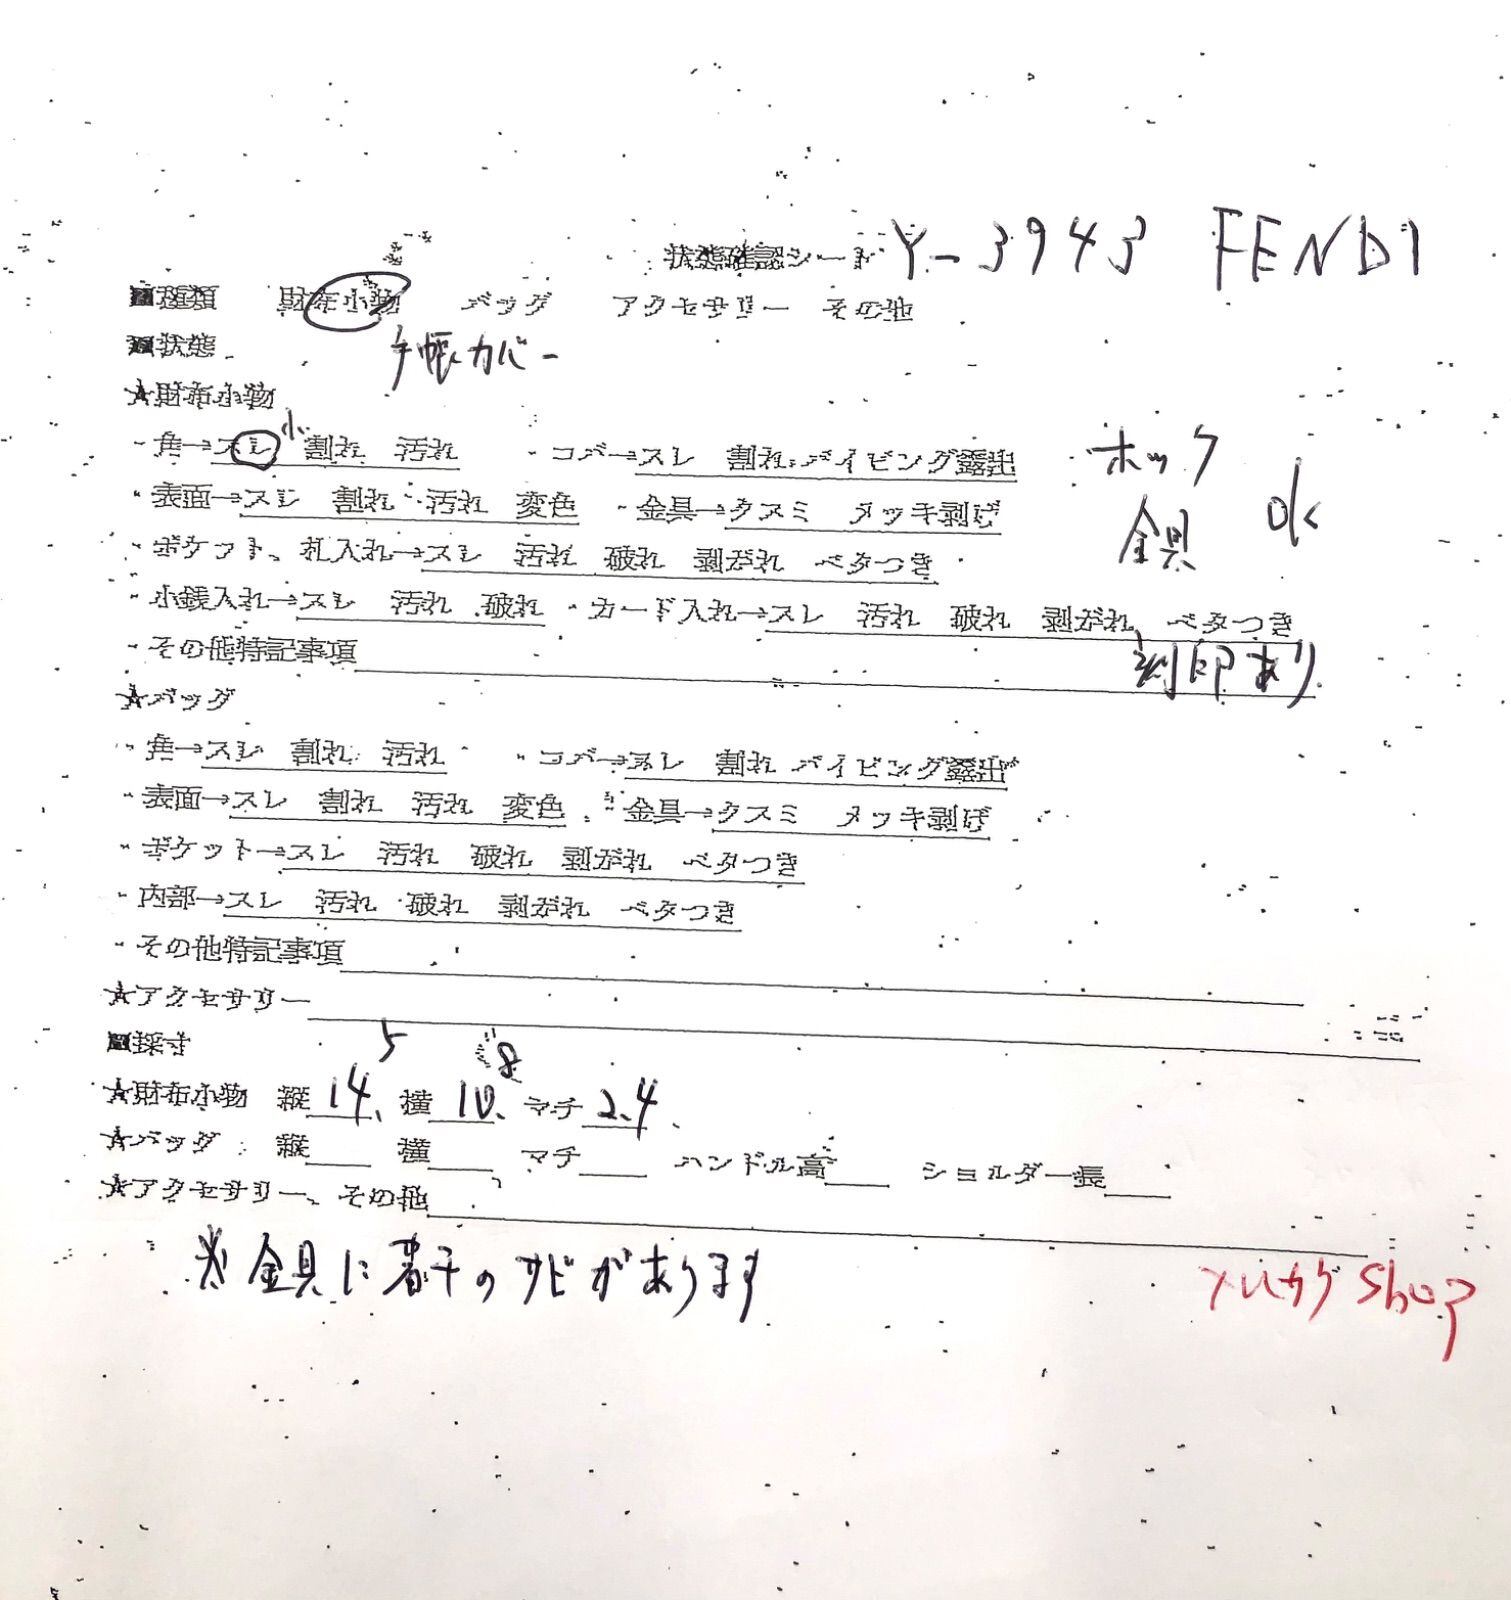 状態確認シート Y-3943 FENDI
■種類 財布小物 バッグ アクセサリー その他
■状態 手帳カバー
★財布小物
・角→スレ 小 割れ 汚れ ・コバ→スレ 割れ パイピング露出 ホック
・表面→スレ 割れ 汚れ 変色 ・金具→クスミ メッキ剥げ 金具 OK
・ポケット、札入れ→スレ 汚れ 破れ 剥がれ ベタつき
・小銭入れ→スレ 汚れ 破れ ・カード入れ→スレ 汚れ 破れ 剥がれ ベタつき
・その他特記事項 刻印あり
★バッグ
・角→スレ 割れ 汚れ ・コバ→スレ 割れ パイピング露出
・表面→スレ 割れ 汚れ 変色 ・金具→クスミ メッキ剥げ
・ポケット→スレ 汚れ 破れ 剥がれ ベタつき
・内部→スレ 汚れ 破れ 剥がれ ベタつき
・その他特記事項
★アクセサリー
■採寸
★財布小物 縦 14.5 横 10.8 マチ 2.4
★バッグ 縦 横 マチ ハンドル高 ショルダー長
★アクセサリー、その他
※金具に若干のサビがあります
shop